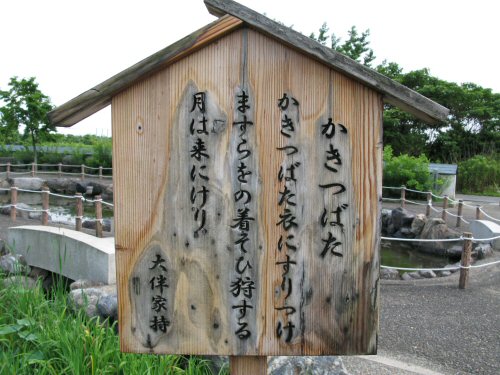 かきつばた
かきつばた衣にすりつけ
ますらをの着そひ狩する
月は来にけり
大伴家持